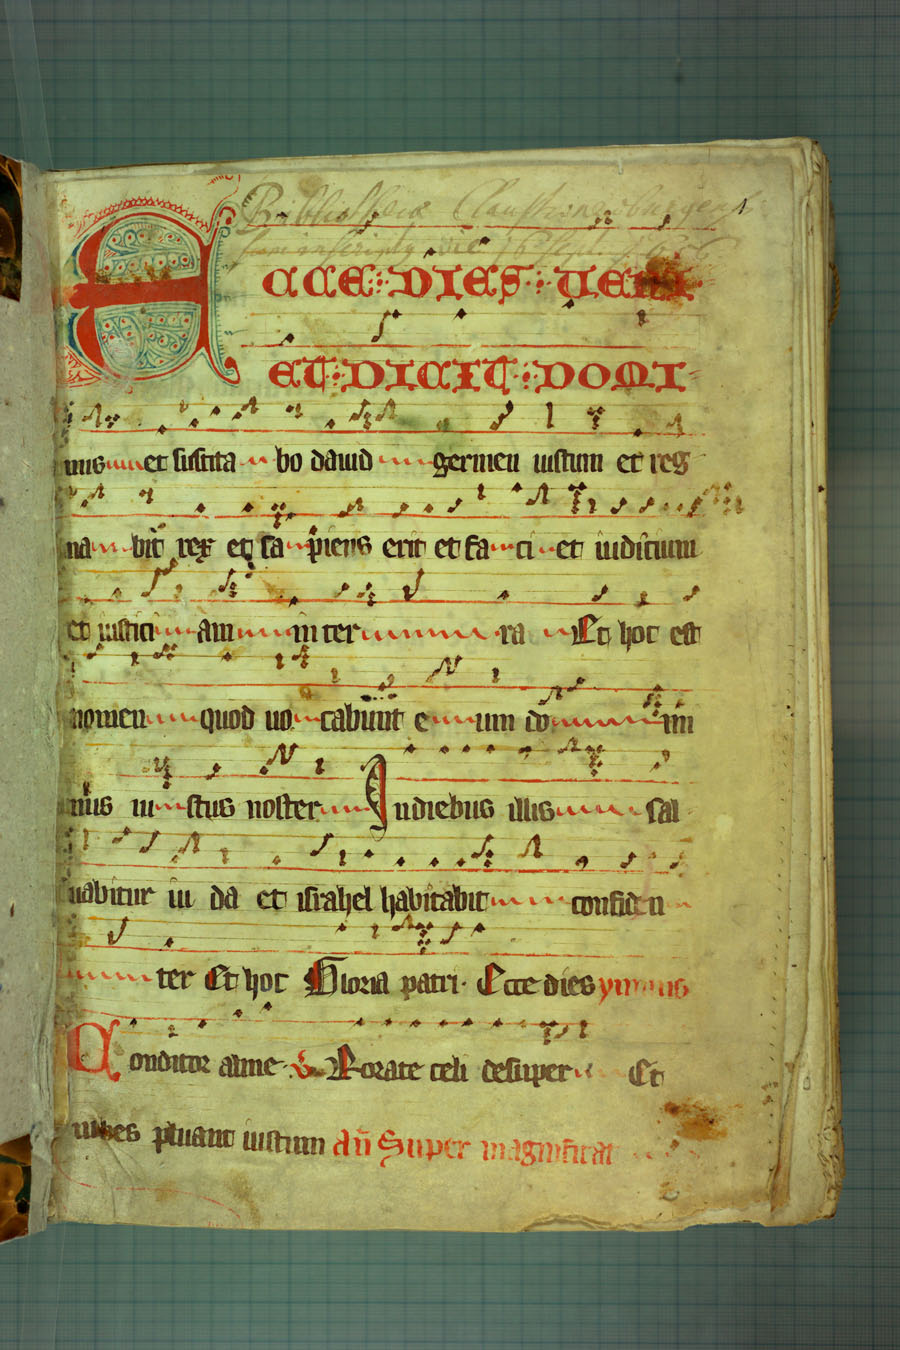 Bibliothecæ Claustroneoburgensis 1
ECCE DIES UENI
ET DICIT DOMI
nus et suscita bo dauid germen iustum et reg
na bit rex et sa piens erit et fa ci et iudicium
et iustici am in ter ra Et hoc est
nomen quod uo cabunt e um do mi
nus iu stus noster In diebus illis sal
uabitur iu da et israhel habitabit confiden
ter Et hoc Gloria patri. Ecce dies ymnus
Conditor alme. V Rorate celi desuper Et
nubes pluant iustum an Super magnificat